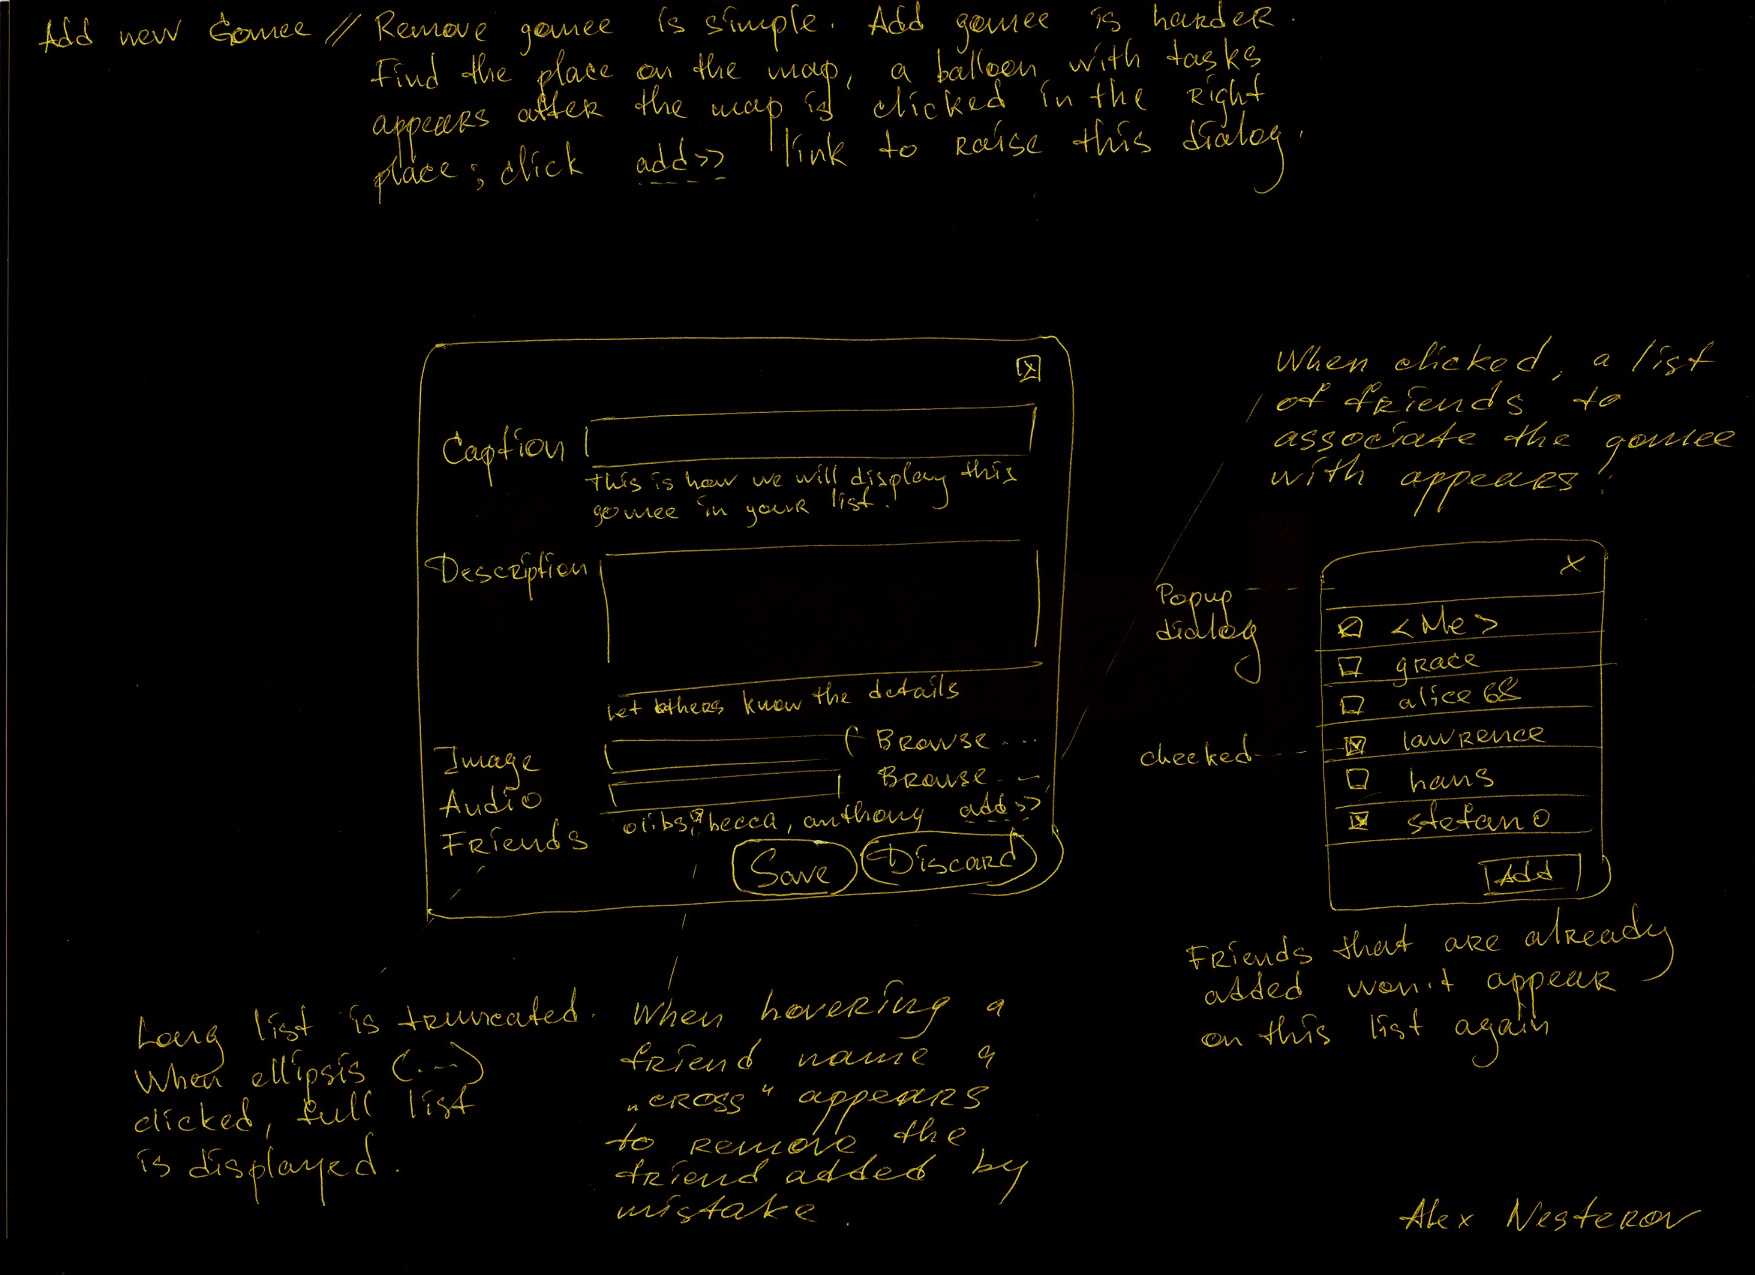 Add new Gomee // Remove gomee is simple. Add gomee is harder.
Find the place on the map, a balloon with tasks
appears after the map is clicked in the right
place; click add>> link to raise this dialog.
x
Caption
This is how we will display this
gomee in your list.
Description
Let others know the details
Image
Browse...
Audio
Browse...
Friends
becca, anthony add>>
Save
Discard
When clicked, a list
of friends to
associate the gomee
with appears.
Popup
dialog
x
<Me>
grace
alice68
checked
lawrence
hans
stefano
Add
Friends that are already
added won't appear
on this list again
Long list is truncated.
When ellipsis (...)
clicked, full list
is displayed.
When hovering a
friend name a
„cross" appears
to remove the
friend added by
mistake.
Alex Nesterov